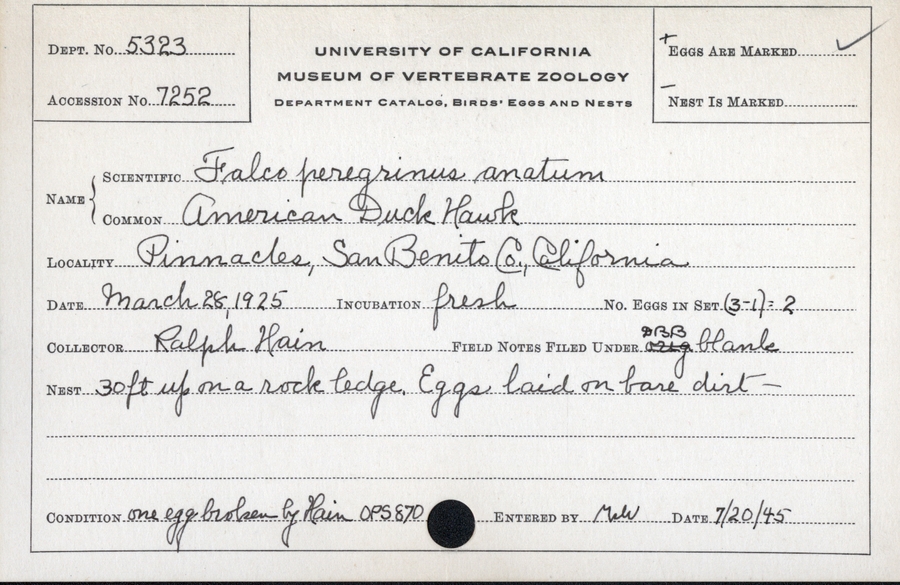 Dept. No. 5323
Accession No. 7252
UNIVERSITY OF CALIFORNIA
MUSEUM OF VERTEBRATE ZOOLOGY
Department Catalog, Birds' Eggs and Nests
+ Eggs Are Marked ✓
- Nest Is Marked
Name { Scientific Falco peregrinus anatum
Common American Duck Hawk
Locality Pinnacles, San Benito Co., California
Date March 28, 1925 Incubation fresh No. Eggs in Set (3-1) = 2
Collector Ralph Hain Field Notes Filed Under blank
Nest 30 ft up on a rock ledge. Eggs laid on bare dirt —
Condition one egg broken by Hain OPS 870 Entered by Date 7/20/45